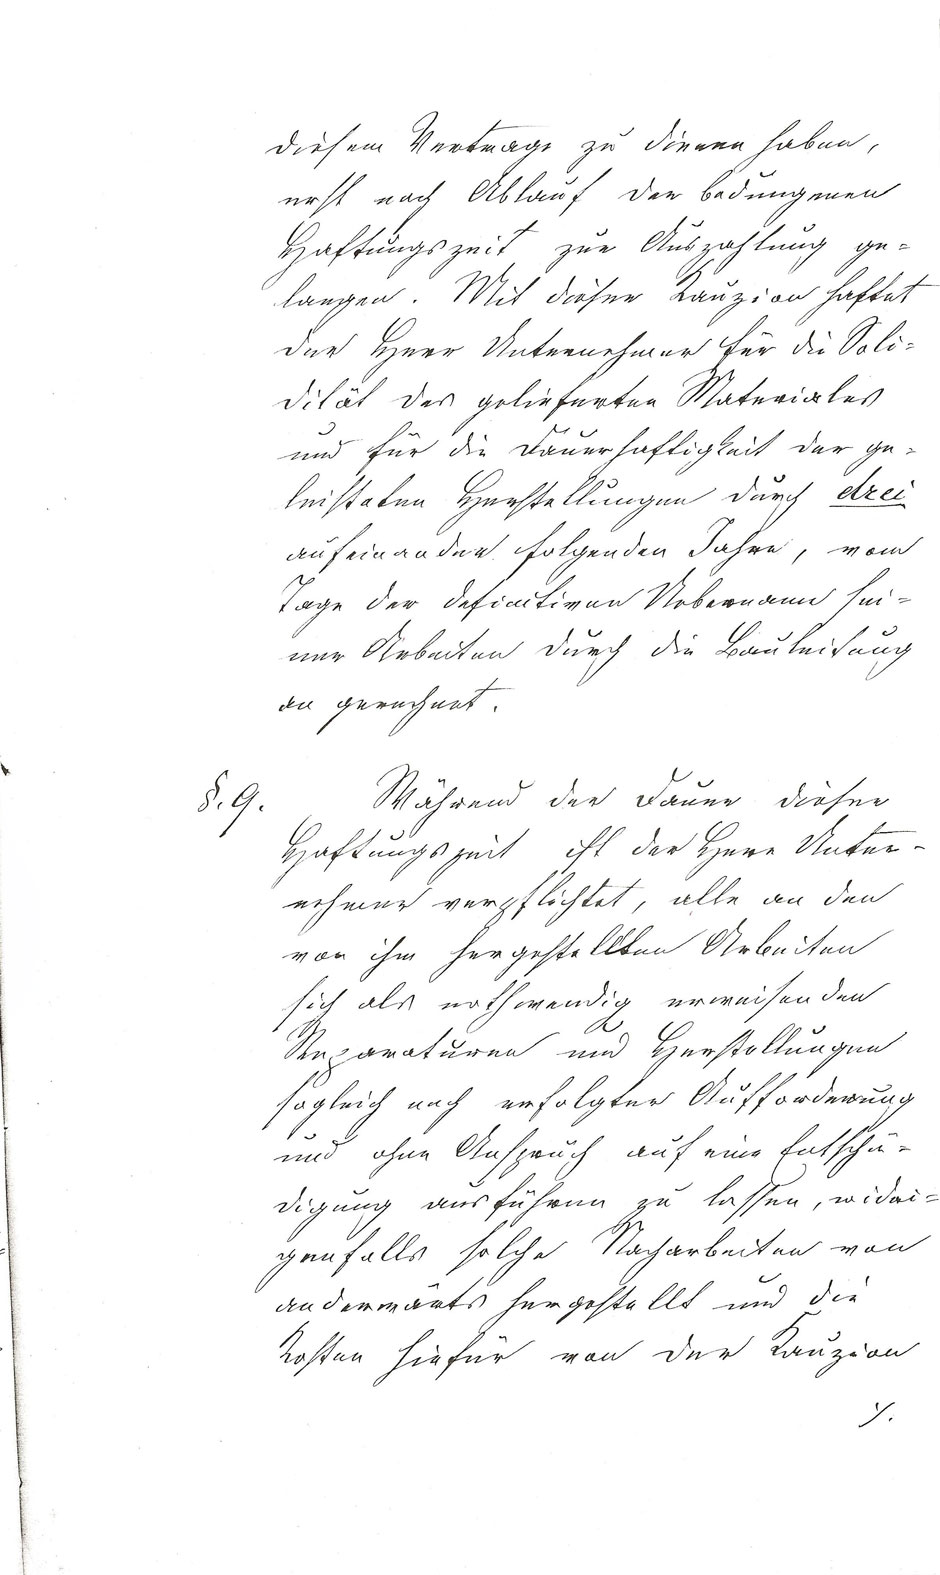 diesem Vertrage zu dienen haben,
erst nach Ablauf der bedungenen
Haftungszeit zur Auszahlung ge=
langen. Mit dieser Kauzion haftet
der Herr Unternehmer für die Soli=
dität des gelieferten Materiales
und für die Dauerhaftigkeit der ge=
leisteten Herstellungen durch drei
aufeinander folgenden Jahre, vom
Tage der definitiven Uebernahme sei=
ner Arbeiten durch die Bauleitung
an gerechnet.
§. 9. Während der Dauer dieser
Haftungszeit ist der Herr Unter=
nehmer verpflichtet, alle an den
von ihm hergestellten Arbeiten
sich als nothwendig erweisenden
Reparaturen und Herstellungen
sogleich nach erfolgter Aufforderung
und ohne Anspruch auf eine Entschä=
digung ausführen zu lassen, widri=
genfalls solche Nacharbeiten von
anderwärts hergestellt und die
Kosten hiefür von der Kauzion